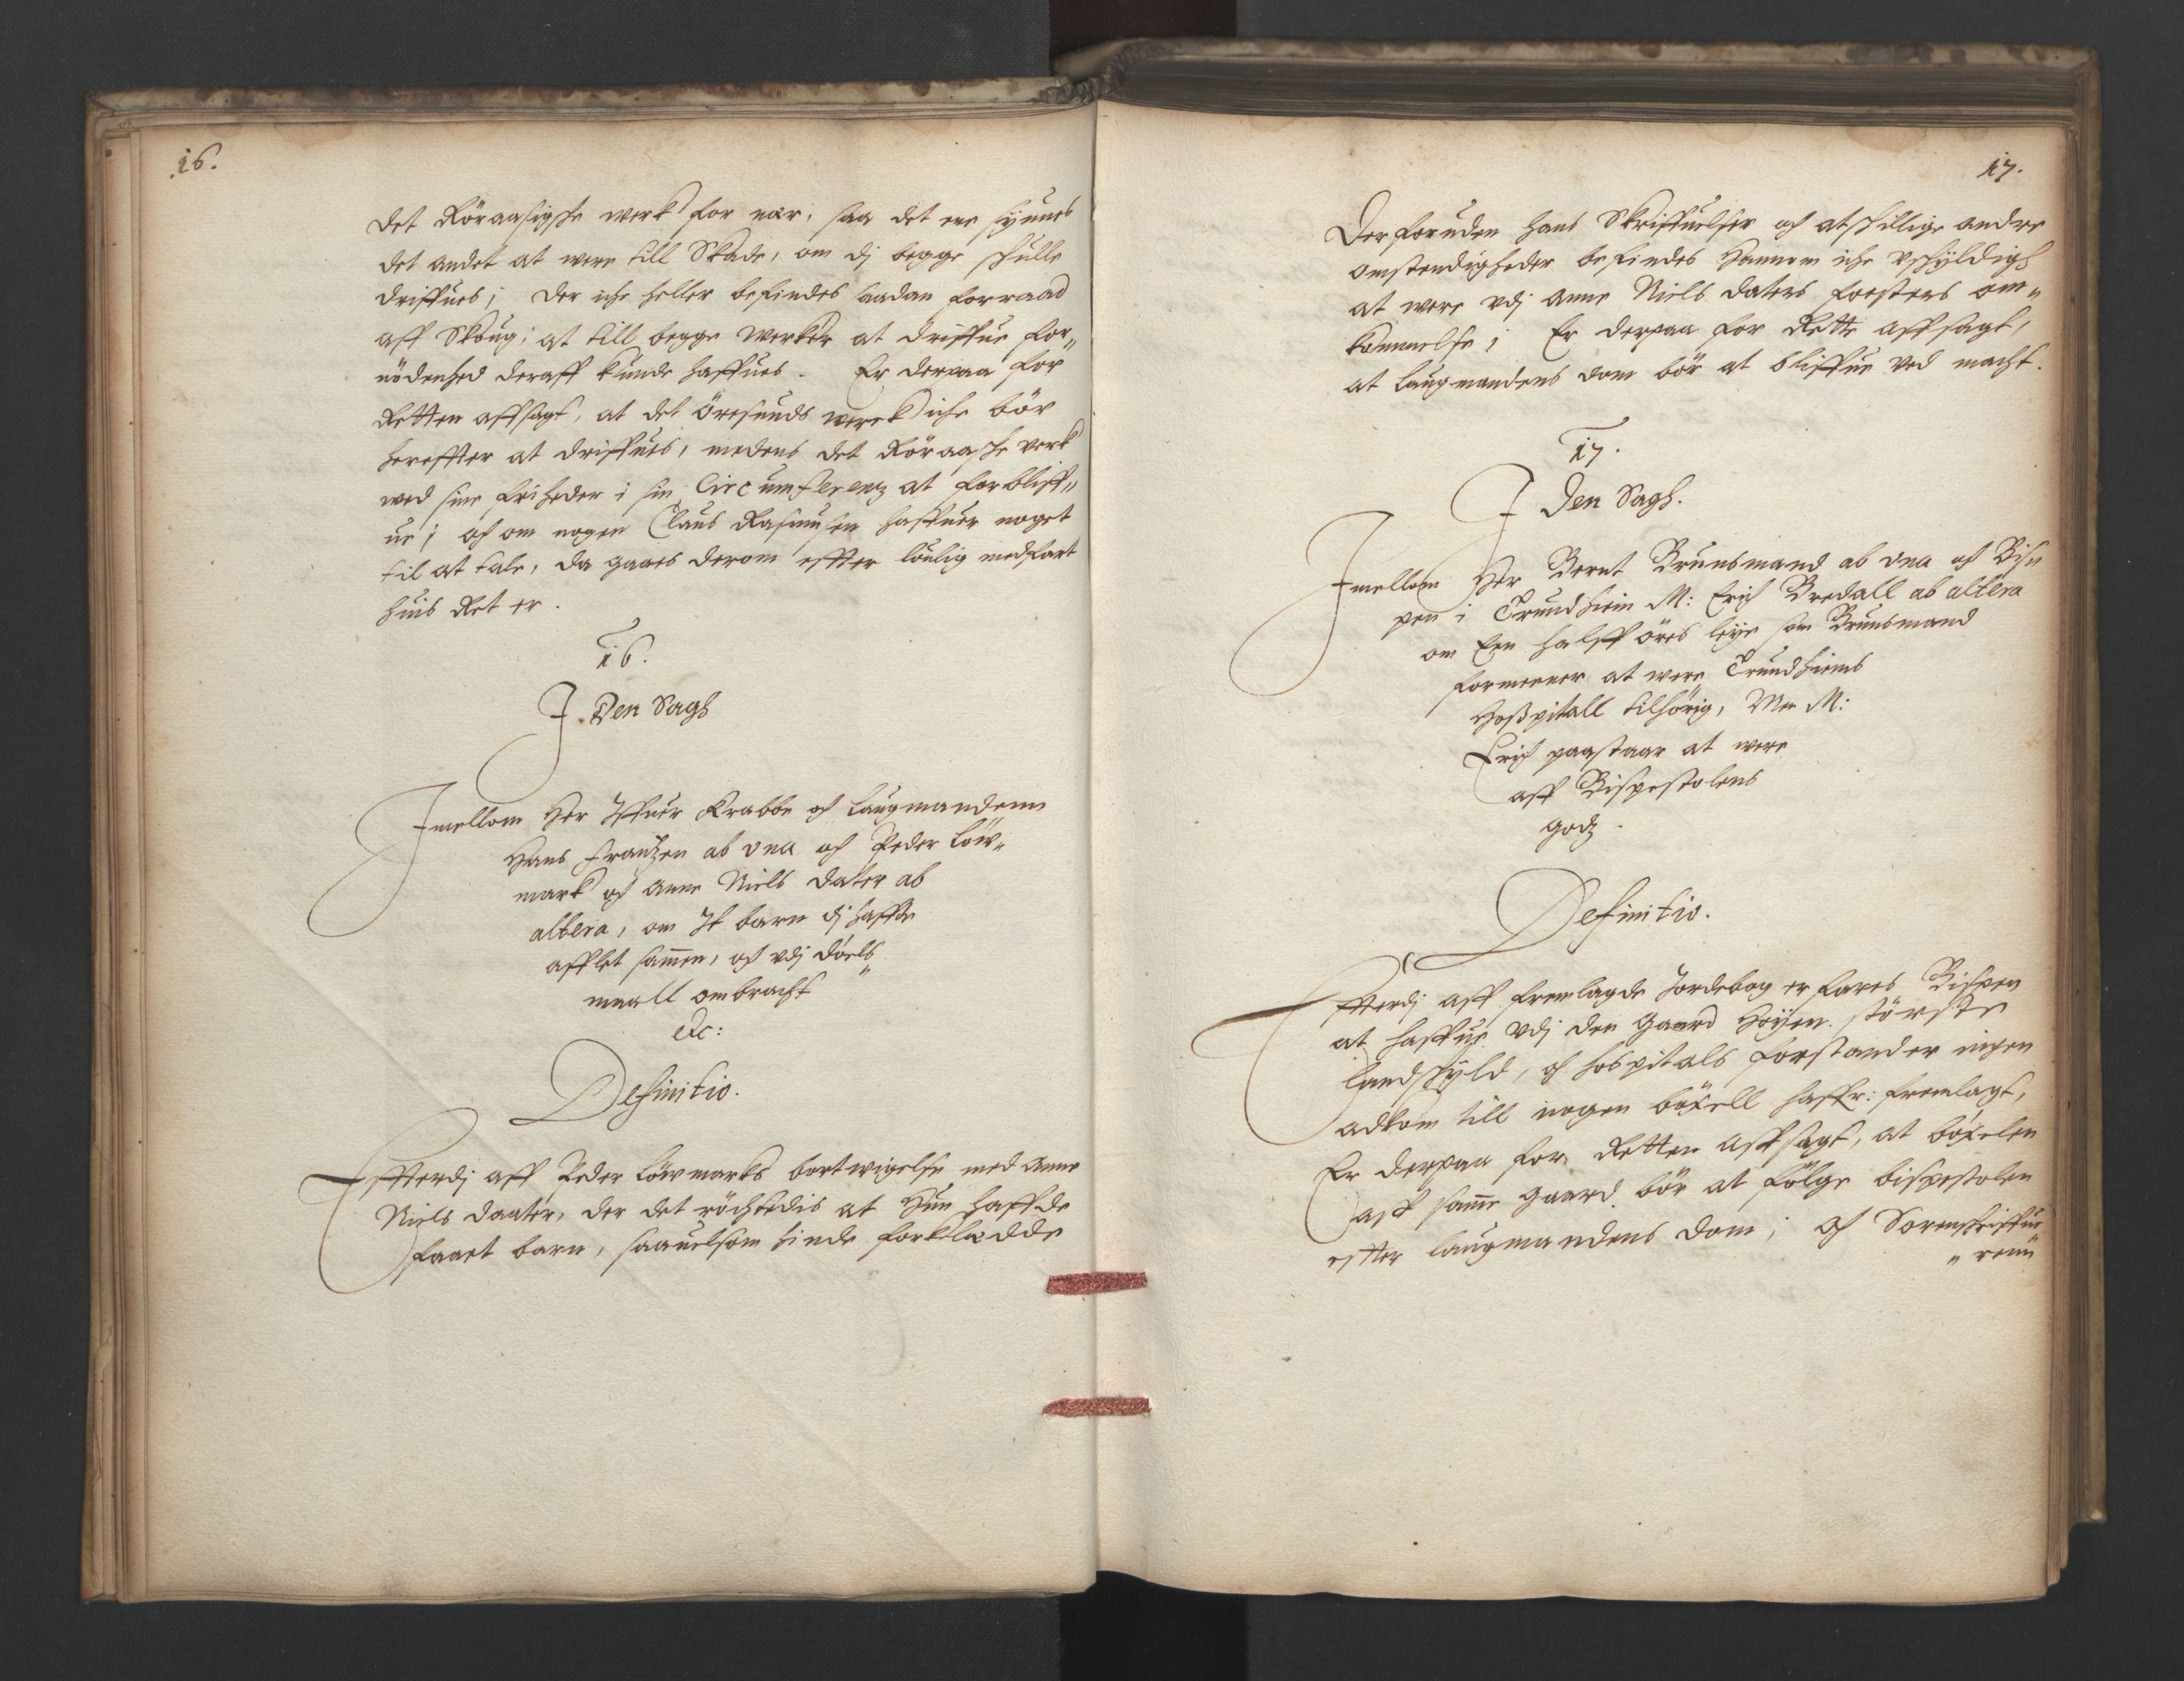 16.
det Röraasigshe werk for nær, saa det ene shyunes
det andet at were till Skade, om dj begge shulle
driffues; der iche heller befindes saadan forraad
aff Skoug; at till begge Werker at driffue for„
nödenhed deraff kunde haffues. Er derpaa for
Retten affsagt, at det Öresunds werck iche bör
hereffter at driffues, medens det Röraashe verk
wed sine friheder i sin Circumferentz at forbliff„
ue; och om nogen Claus Rasmusen haffuer noget
til at tale, da gaaes derom effter loulig medfart
huis Ret er.
16.
J Den Sagh
Jmellom Her Iffuer Krabbe och Laugmandenn
Hans Frantzen ab una och Peder Löw„
mark och Anne Niels dater ab
altera, om It barn dj haffde
afflet sam̄en, och vdj döels„
maall ombracht
etc:
Definitio.
Effterdj aff Peder Löwmarks bortwigelse med Anne
Niels daater, der det röchtedis at Hun haffde
faaet barn, saauelsom hinde forklædde
17.
Derforuden hans Skriffuelser och atshillige andre
omstendigheder befindes Hannem iche vshyldigh
at were vdj Anne Niels daters fosters om„
kommelse; Er derpaa for Rette affsagt,
at Laugmandens dom bör at bliffue ved macht.
17.
J Den Sagh.
Jmellom Her Bernt Brunsmand ab una och Bis„
pen i Trundhiem M: Erich Bredall ab altera
om Een halff öres leye som Brunsmand
formeener at were Trundhiems
Hospitall tilhörig, Men M:
Erich paastaar at were
aff Bispestolens
godz.
Definitio.
Effterdj aff fremlagde Jordebog erfares Bispen
at haffue vdj den gaard Høyen störste
Landshyld, och hospitals forstander ingen
adkom till nogen böxell haffr: fremlagt,
Er derpaa for Retten affsagt, at böxelen
aff sam̄e gaard bör at fölge bispestolen
effter laugmandens dom; och Sorenskriffue
„renn